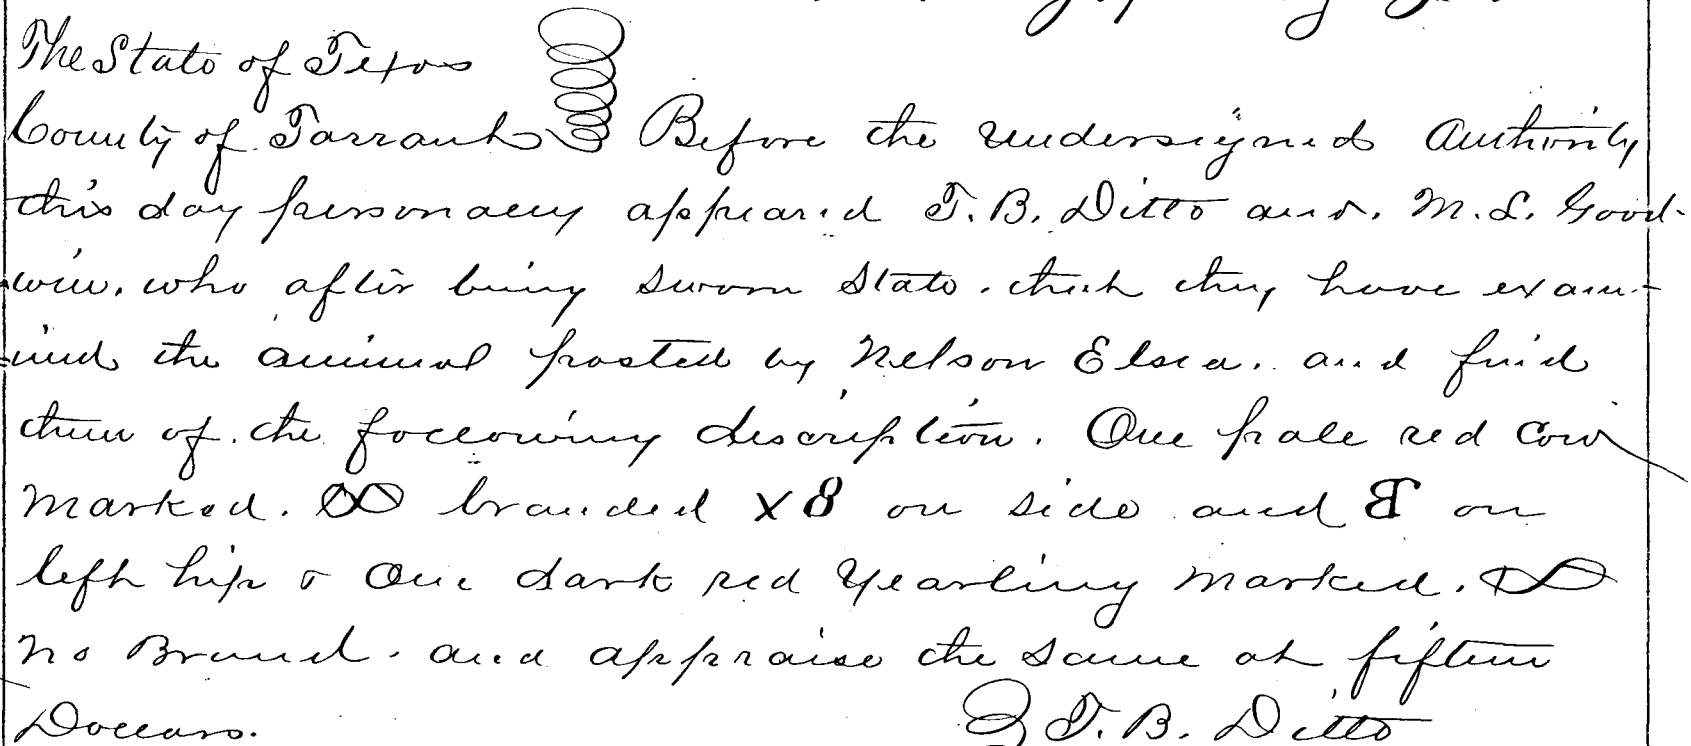 The State of Texas
County of Tarrant Before the undersigned Authority
this day personally appeared T. B. Ditto and. M. L. Good-
win. who after being sworn state. that they have exam-
ined the animal posted by Nelson Elsea. and find
them of. the following description. One pale red cow
marked. branded X8 on side and on
left hip & One dark red Yearling marked.
no Brand. and appraise the same at fifteen
Dollars. T. B. Ditto